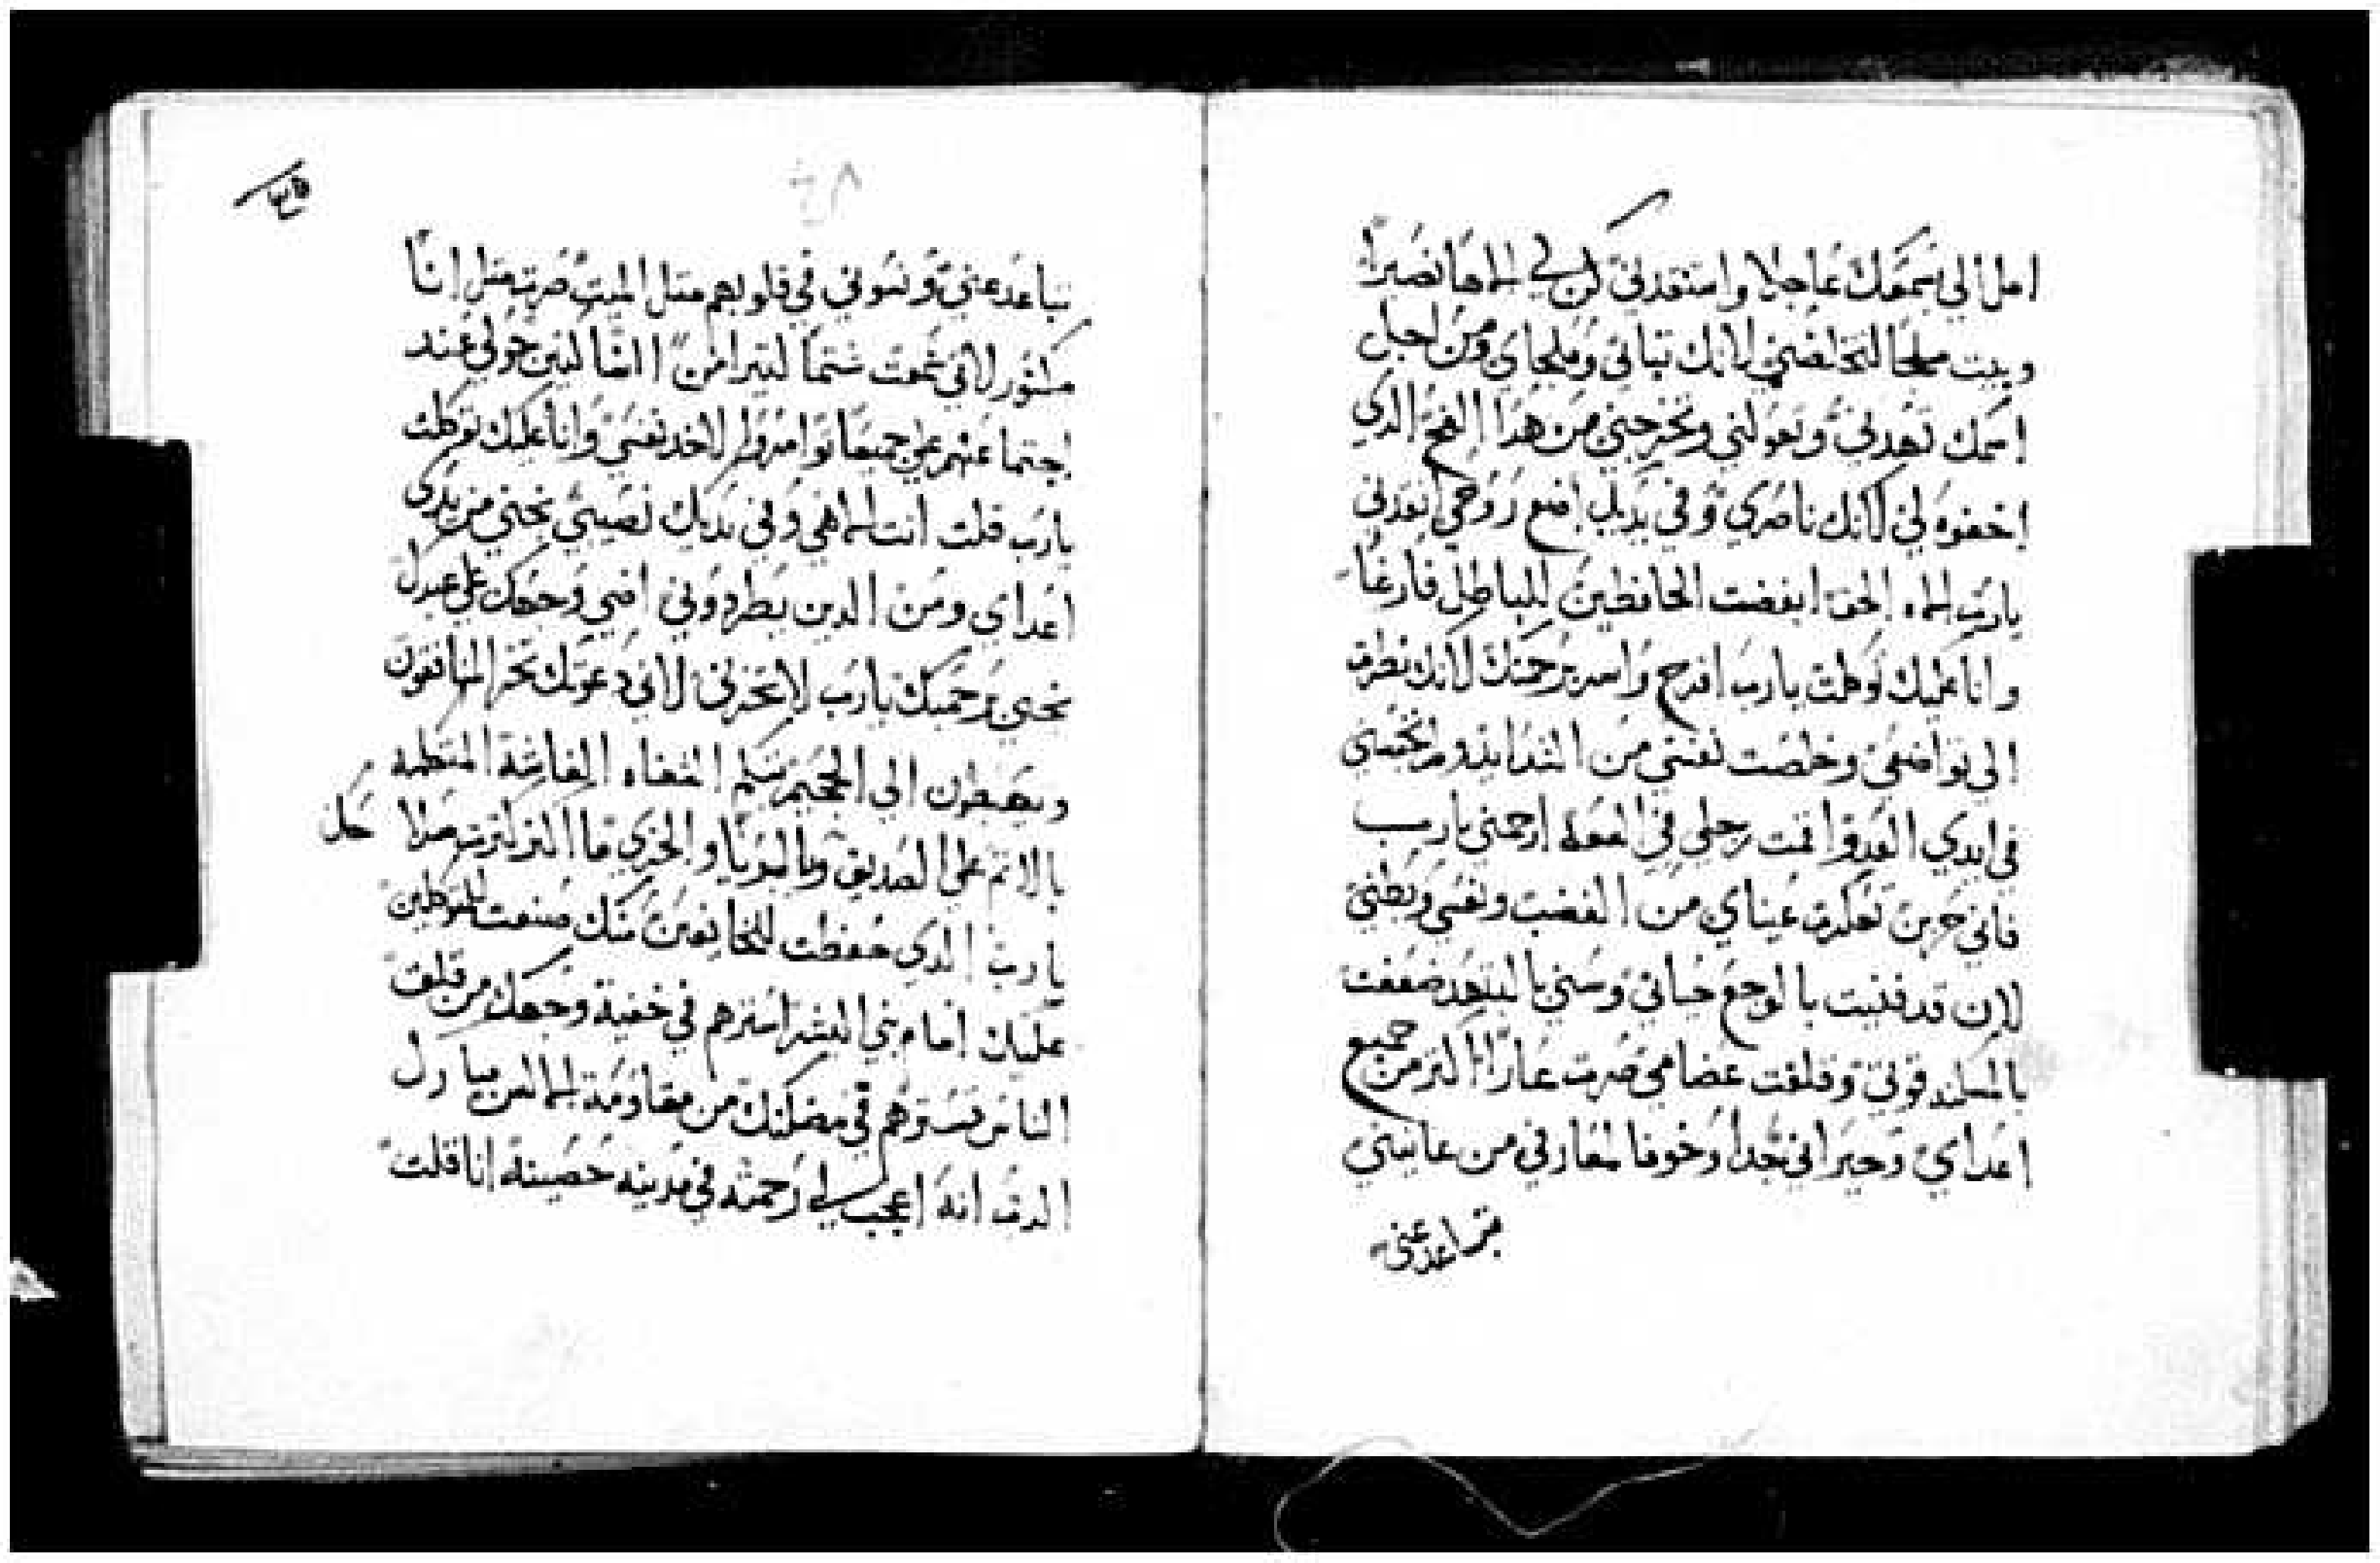 امل الي سمعك عاجلا واستنقدني كن لي الها نصيرًا
وبيت ملجا لتخلصني لانك تباتي وملجاي ومن اجل
اسمك تهديني وتعولني وتخرجني من هدا الفخ الدي
اخفوه لي لانك ناصري وفي يديك اضع روحي انقدني
يارب اله الحق ابغضت الحافظين الباطل فارغًا
وانا عليك توكلت يارب افرح واسر برحمتك لانك نظرت
الي تواضعي وخلصت نفسي من الشدايد ولم تحبسني
في ايدي العدو اقمت رجلي في السعه ارحمني يارب
فاني حزين تعكرت عيناي من الغضب ونفسي وبطني
لان قد فنيت بالوجع حياتي وسني بالتنهد ضعفت
بالمسكنه قوتي وقلقت عضامي صرت عارًا اكتر من جميع
اعداي وجيراني جدا وخوفا لمعارفي من عاينني
تباعد عني
٤٥
٤٨
تباعد عني ونسوني في قلوبهم متل الميت صرت متل انا
مكسور لاني سمعت شتما كتيرا من الساكنين حولي عند
اجتماعهم علي جميعا توامروا لاخد نفسي وانا عليك توكلت
يارب قلت انت الهي وفي يديك نصيبي نجني من يدي
اعداي ومن الدين يطردوني اضي وجهك علي عبدك
نجني برحمتك يارب لا تخزني لاني دعوتك تخز المنافقون
ويهبطون الي الجحيم تبكم الشفاه الغاشة المتكلمه
بالاتم علي الصديق بالكبريا والخزي ما اكتر كترت صلاحك
يارب الدي حفظت للخايفين منك صنعت للمتوكلين
عليك امام بني البشر استرهم في خفية وجهك من قلق
الناس تسترهم في مضلتك من مقاومة الالسن مبارك
الرب انه اعجب لي رحمته في مدينه حصينة انا قلت